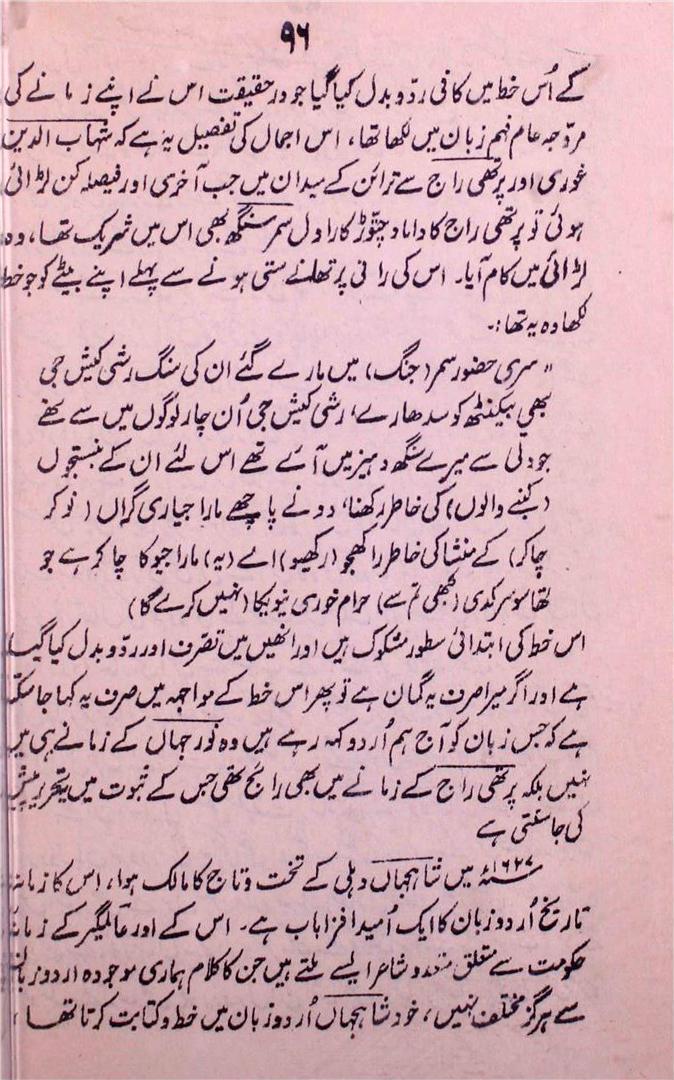 ۹۶
کے اُس خط میں کافی ردّ و بدل کیا گیا جو درحقیقت اس نے اپنے زمانے کی
مروّجہ عام فہم زبان میں لکھا تھا، اس اجمال کی تفصیل یہ ہے کہ شہاب الدین
غوری اور پرتھی راج سے ترائن کے میدان میں جب آخری اور فیصلہ کن لڑائی
ہوئی تو پرتھی راج کا داماد چتّوڑ کا راول سمر سنگھ بھی اس میں شریک تھا، وہ
لڑائی میں کام آیا۔ اس کی رانی پرتھانے ستی ہونے سے پہلے اپنے بیٹے کو جو خط
لکھا وہ یہ تھا:۔
"سری حضور سمر (جنگ) میں مارے گئے ان کی سنگ رشی کیش جی
بھی بیکنٹھ کو سدھارے، رشی کیش جی اُن چار لوگوں میں سے تھے
جو دلی سے میرے سنگھ دہیز میں آئے تھے اس لئے ان کے
(کنبے والوں) کی خاطر رکھنا، دونے پاچھے مارا جیاری گراں (نوکر
چاکر) کے منشا کی خاطر راکھجو (رکھیو) اے (یہ) مارا جیو کا چاکر ہے جو
تھا سو سرکدی (کبھی تم سے) حرام خوری نیو یکا (نہیں کرے گا)
اس خط کی ابتدائی سطور مشکوک ہیں اور انھیں میں تصرّف اور ردّ و بدل کیا گیا
ہے اور اگر میرا صرف یہ گمان ہے تو پھر اس خط کے مواجہہ میں صرف یہ کہا جا سکتا
ہے کہ جس زبان کو آج ہم اُردو کہہ رہے ہیں وہ نور جہاں کے زمانے ہی میں
نہیں بلکہ پرتھی راج کے زمانے میں بھی رائج تھی جس کے ثبوت میں یہ تحریر پیش
کی جا سکتی ہے
۱۶۲۷ء میں شاہجہاں دہلی کے تخت و تاج کا مالک ہوا، اس کا زمانہ
تاریخ اُردو زبان کا ایک اُمید افزا باب ہے۔ اس کے اور عالمگیر کے زمانۂ
حکومت سے متعلق متعدد شاعر ایسے ملتے ہیں جن کا کلام ہماری موجودہ اردو زبان
سے ہرگز مختلف نہیں، خود شاہجہاں اُردو زبان میں خط و کتابت کرتا تھا،